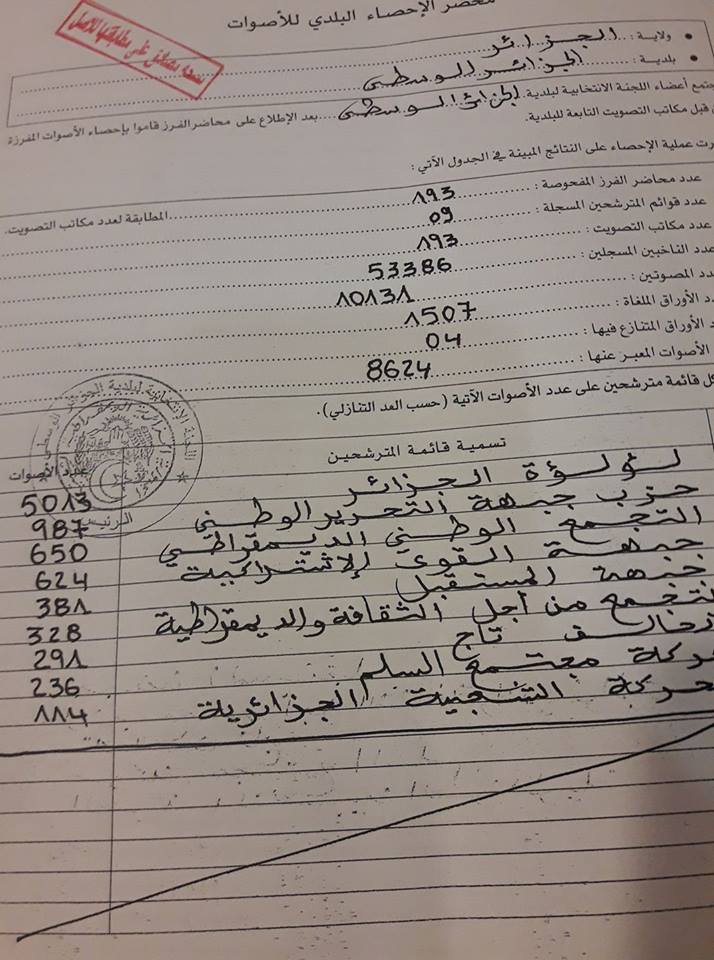 محضر الإحصاء البلدي للأصوات
نسخة مصادق على مطابقتها للأصل
• ولاية : الجزائر
• بلدية : الجزائر الوسطى
جتمع أعضاء اللجنة الانتخابية لبلدية الجزائر الوسطى بعد الإطلاع على محاضر الفرز قاموا بإحصاء الأصوات المفرزة
ن قبل مكاتب التصويت التابعة للبلدية.
رت عملية الإحصاء على النتائج المبينة في الجدول الآتي :
عدد محاضر الفرز المفحوصة : 193 المطابقة لعدد مكاتب التصويت.
عدد قوائم المترشحين المسجلة : 09
عدد مكاتب التصويت : 193
عدد الناخبين المسجلين : 53386
دد المصوتين : 10131
د الأوراق الملغاة : 1507
د الأوراق المتنازع فيها : 04
الأصوات المعبر عنها : 8624
كل قائمة مترشحين على عدد الأصوات الآتية (حسب العد التنازلي).
اللجنة الانتخابية لبلدية الجزائر الوسطى
الرئيس
تسمية قائمة المترشحين عدد الأصوات
لؤلؤة الجزائر 5013
حزب جبهة التحرير الوطني 987
التجمع الوطني الديمقراطي 650
جبهة القوى الإشتراكية 624
جبهة المستقبل 381
لتجمع من أجل الثقافة والديمقراطية 328
تحالف تاج 291
حركة مجتمع السلم 236
حركة الشعبية الجزائرية 114